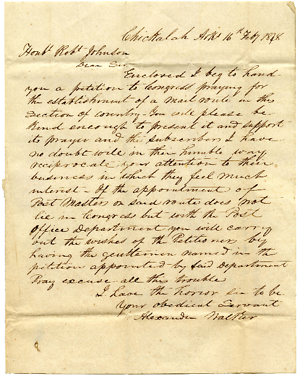 Chickalah Arks 16th Feby 1848
Honbl Robt Johnson
Dear Sir
Enclosed I beg to hand
you a petition to Congress praying for
the establishment of a mail route in this
Section of country. You will please be
kind enough to present it and support
its prayer and the subscribers I have
no doubt will in their humble way
reciprocate your attention to their
business in which they feel much
interest. If the appointment of
Post Master on said route does not
lie in Congress but with the Post
Office Department you will carry
out the wishes of the Petitioners by
having the gentlemen named in the
petition appointed by said Department
Pray excuse all this trouble
I have the honor sir to be
Your obedient Servant
Alexander Walker